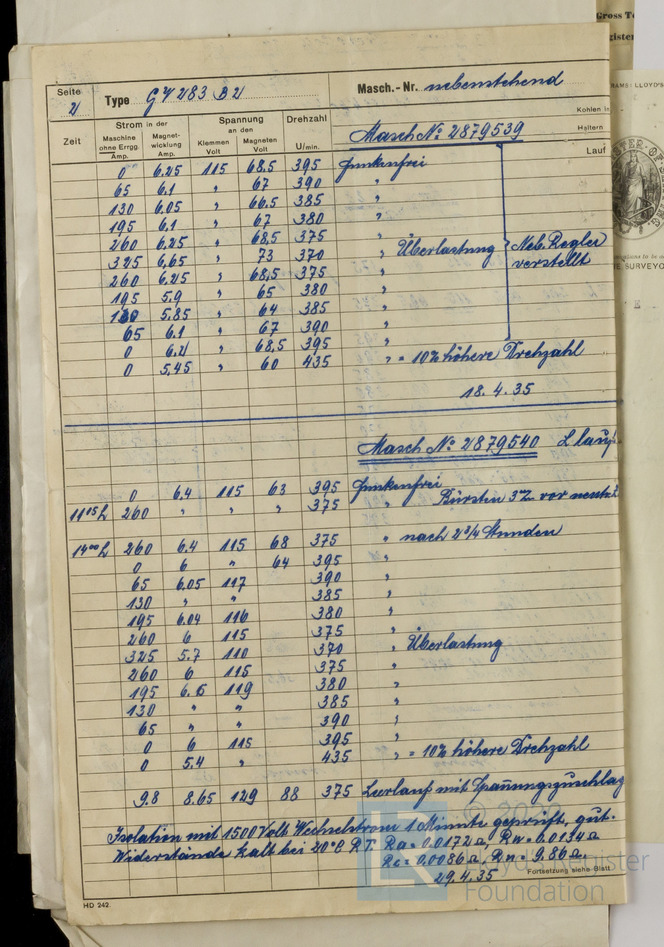 Seite
2
Type GY 283 B2
Masch.-Nr. nebenstehend
Zeit
Strom in der
Maschine ohne Errgg. Amp.
Magnet-wicklung Amp.
Spannung an den
Klemmen Volt
Magneten Volt
Drehzahl
U/min.
Kohlen in
Haltern
Lauf
Masch No 2879539
0 6.25 115 68.5 395 funkenfrei
65 6.1 " 67 390 "
130 6.05 " 66.5 385 "
195 6.1 " 67 380 "
260 6.25 " 68,5 375 "
325 6,65 " 73 370 " Überlastung Neb. Regler
260 6.25 " 68,5 375 " verstellt
195 5.9 " 65 380 "
130 5.85 " 64 385 "
65 6.1 " 67 390 "
0 6.2 " 68,5 395 "
0 5,45 " 60 435 " = 10% höhere Drehzahl
18.4.35
Masch No 2879540 L lauf
0 6.4 115 63 395 funkenfrei
11 15 h 260 " " " 375 " Bürsten vor
14 00 h 260 6.4 115 68 375 " nach 2 3/4 Stunden
0 6 " 64 395 "
65 6.05 117 390 "
130 " " 385 "
195 6.04 116 380 "
260 6 115 375 "
325 5.7 110 370 " Überlastung
260 6 115 375 "
195 119 380 "
130 " " 385 "
65 " " 390 "
0 6 115 395 "
0 5.4 " 435 " = 10% höhere Drehzahl
9.8 8.65 129 88 375 Leerlauf mit Spannungszuschlag
Isolation mit 1500 Volt Wechselstrom 1 Minute geprüft, gut.
Widerstände kalt bei 20°C RT. Ra = 0.0172 Ω, Rw = 0.0134 Ω
Rc = 0,0086 Ω, Rn = 9.86 Ω.
29.4.35
Fortsetzung siehe Blatt
HD 242
Gross
LLOYD'S
SURVEYO
© 20
LR
Lloyd's Register
Foundation